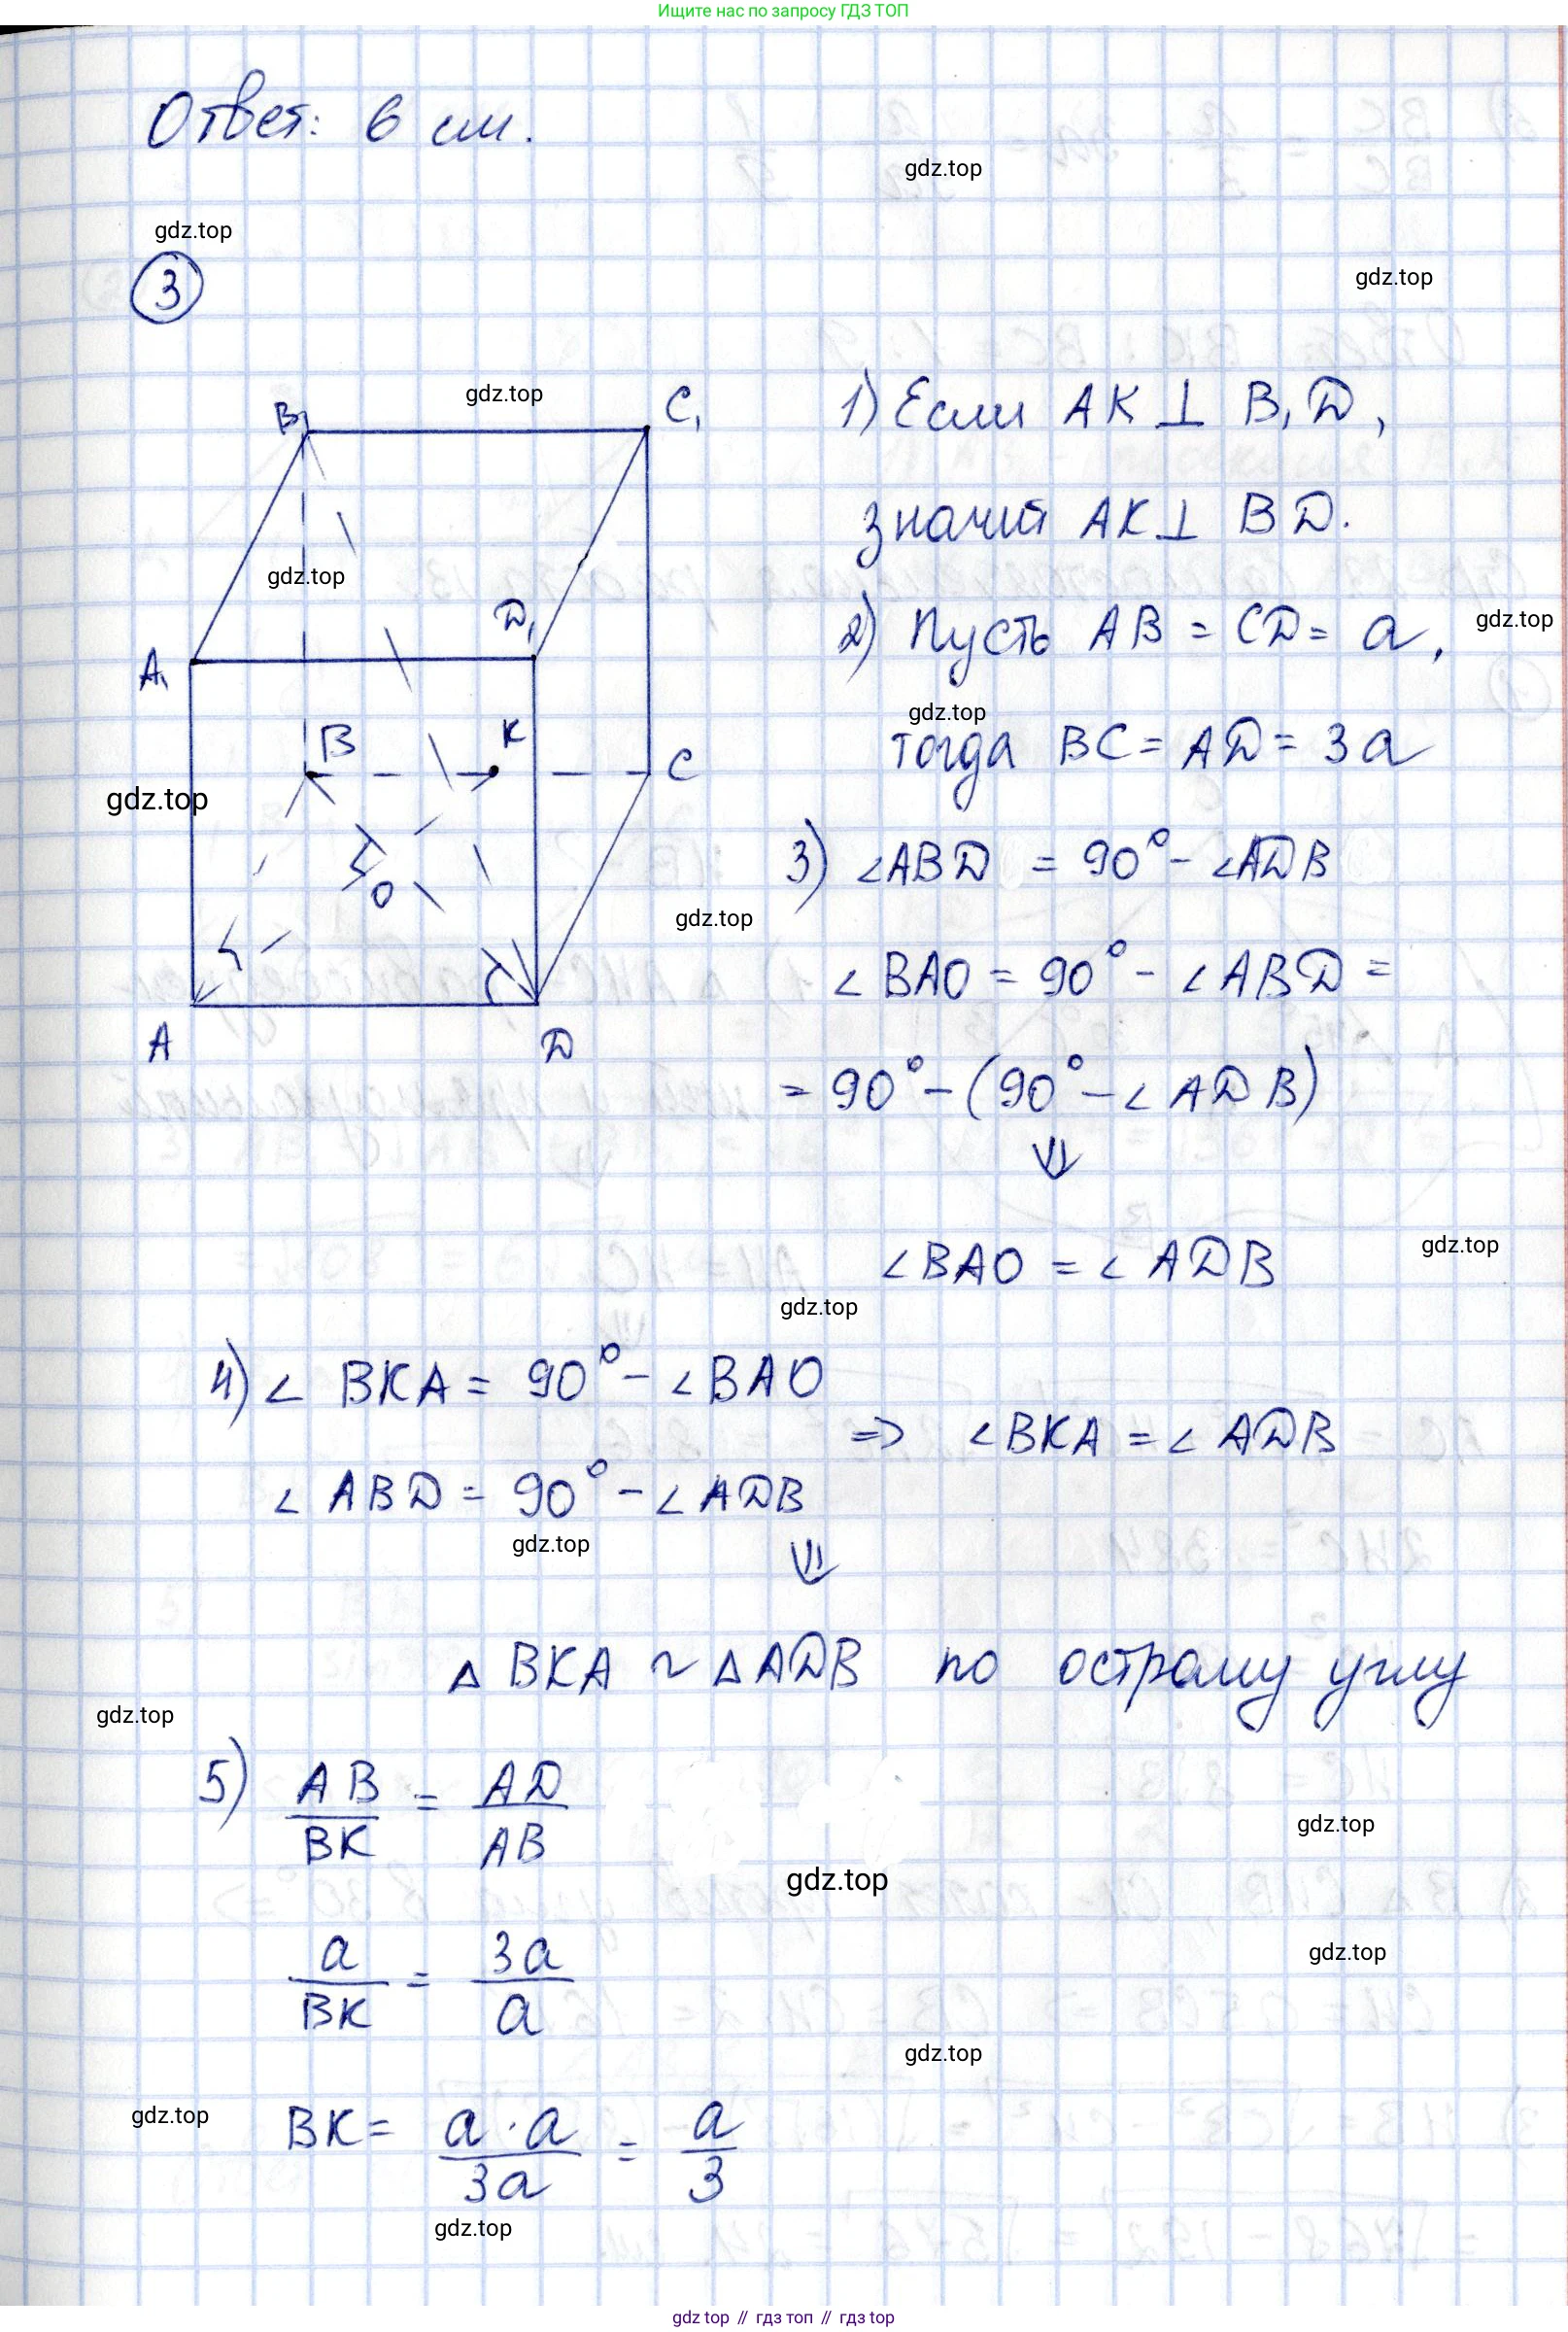 Ищите нас по запросу ГДЗ ТОП
Ответ: 6 см.
gdz.top
gdz.top
3
gdz.top
gdz.top
B₁
C₁
1) Если AK ⊥ B₁D,
значит AK ⊥ BD.
gdz.top
D₁
2) Пусть AB = CD = a,
gdz.top
A₁
gdz.top
B
K
C
тогда BC = AD = 3a
gdz.top
3) ∠ABD = 90° - ∠ADB
O
gdz.top
∠BAO = 90° - ∠ABD =
A
D
= 90° - (90° - ∠ADB)
⇓
gdz.top
∠BAO = ∠ADB
gdz.top
4) ∠BKA = 90° - ∠BAO
⇒ ∠BKA = ∠ADB
∠ABD = 90° - ∠ADB
gdz.top
⇓
△BKA ~ △ADB по острому углу
gdz.top
5) AB/BK = AD/AB
gdz.top
gdz.top
a/BK = 3a/a
gdz.top
gdz.top
gdz.top
BK = a · a/3a = a/3
gdz.top
gdz top // гдз топ // гдз top